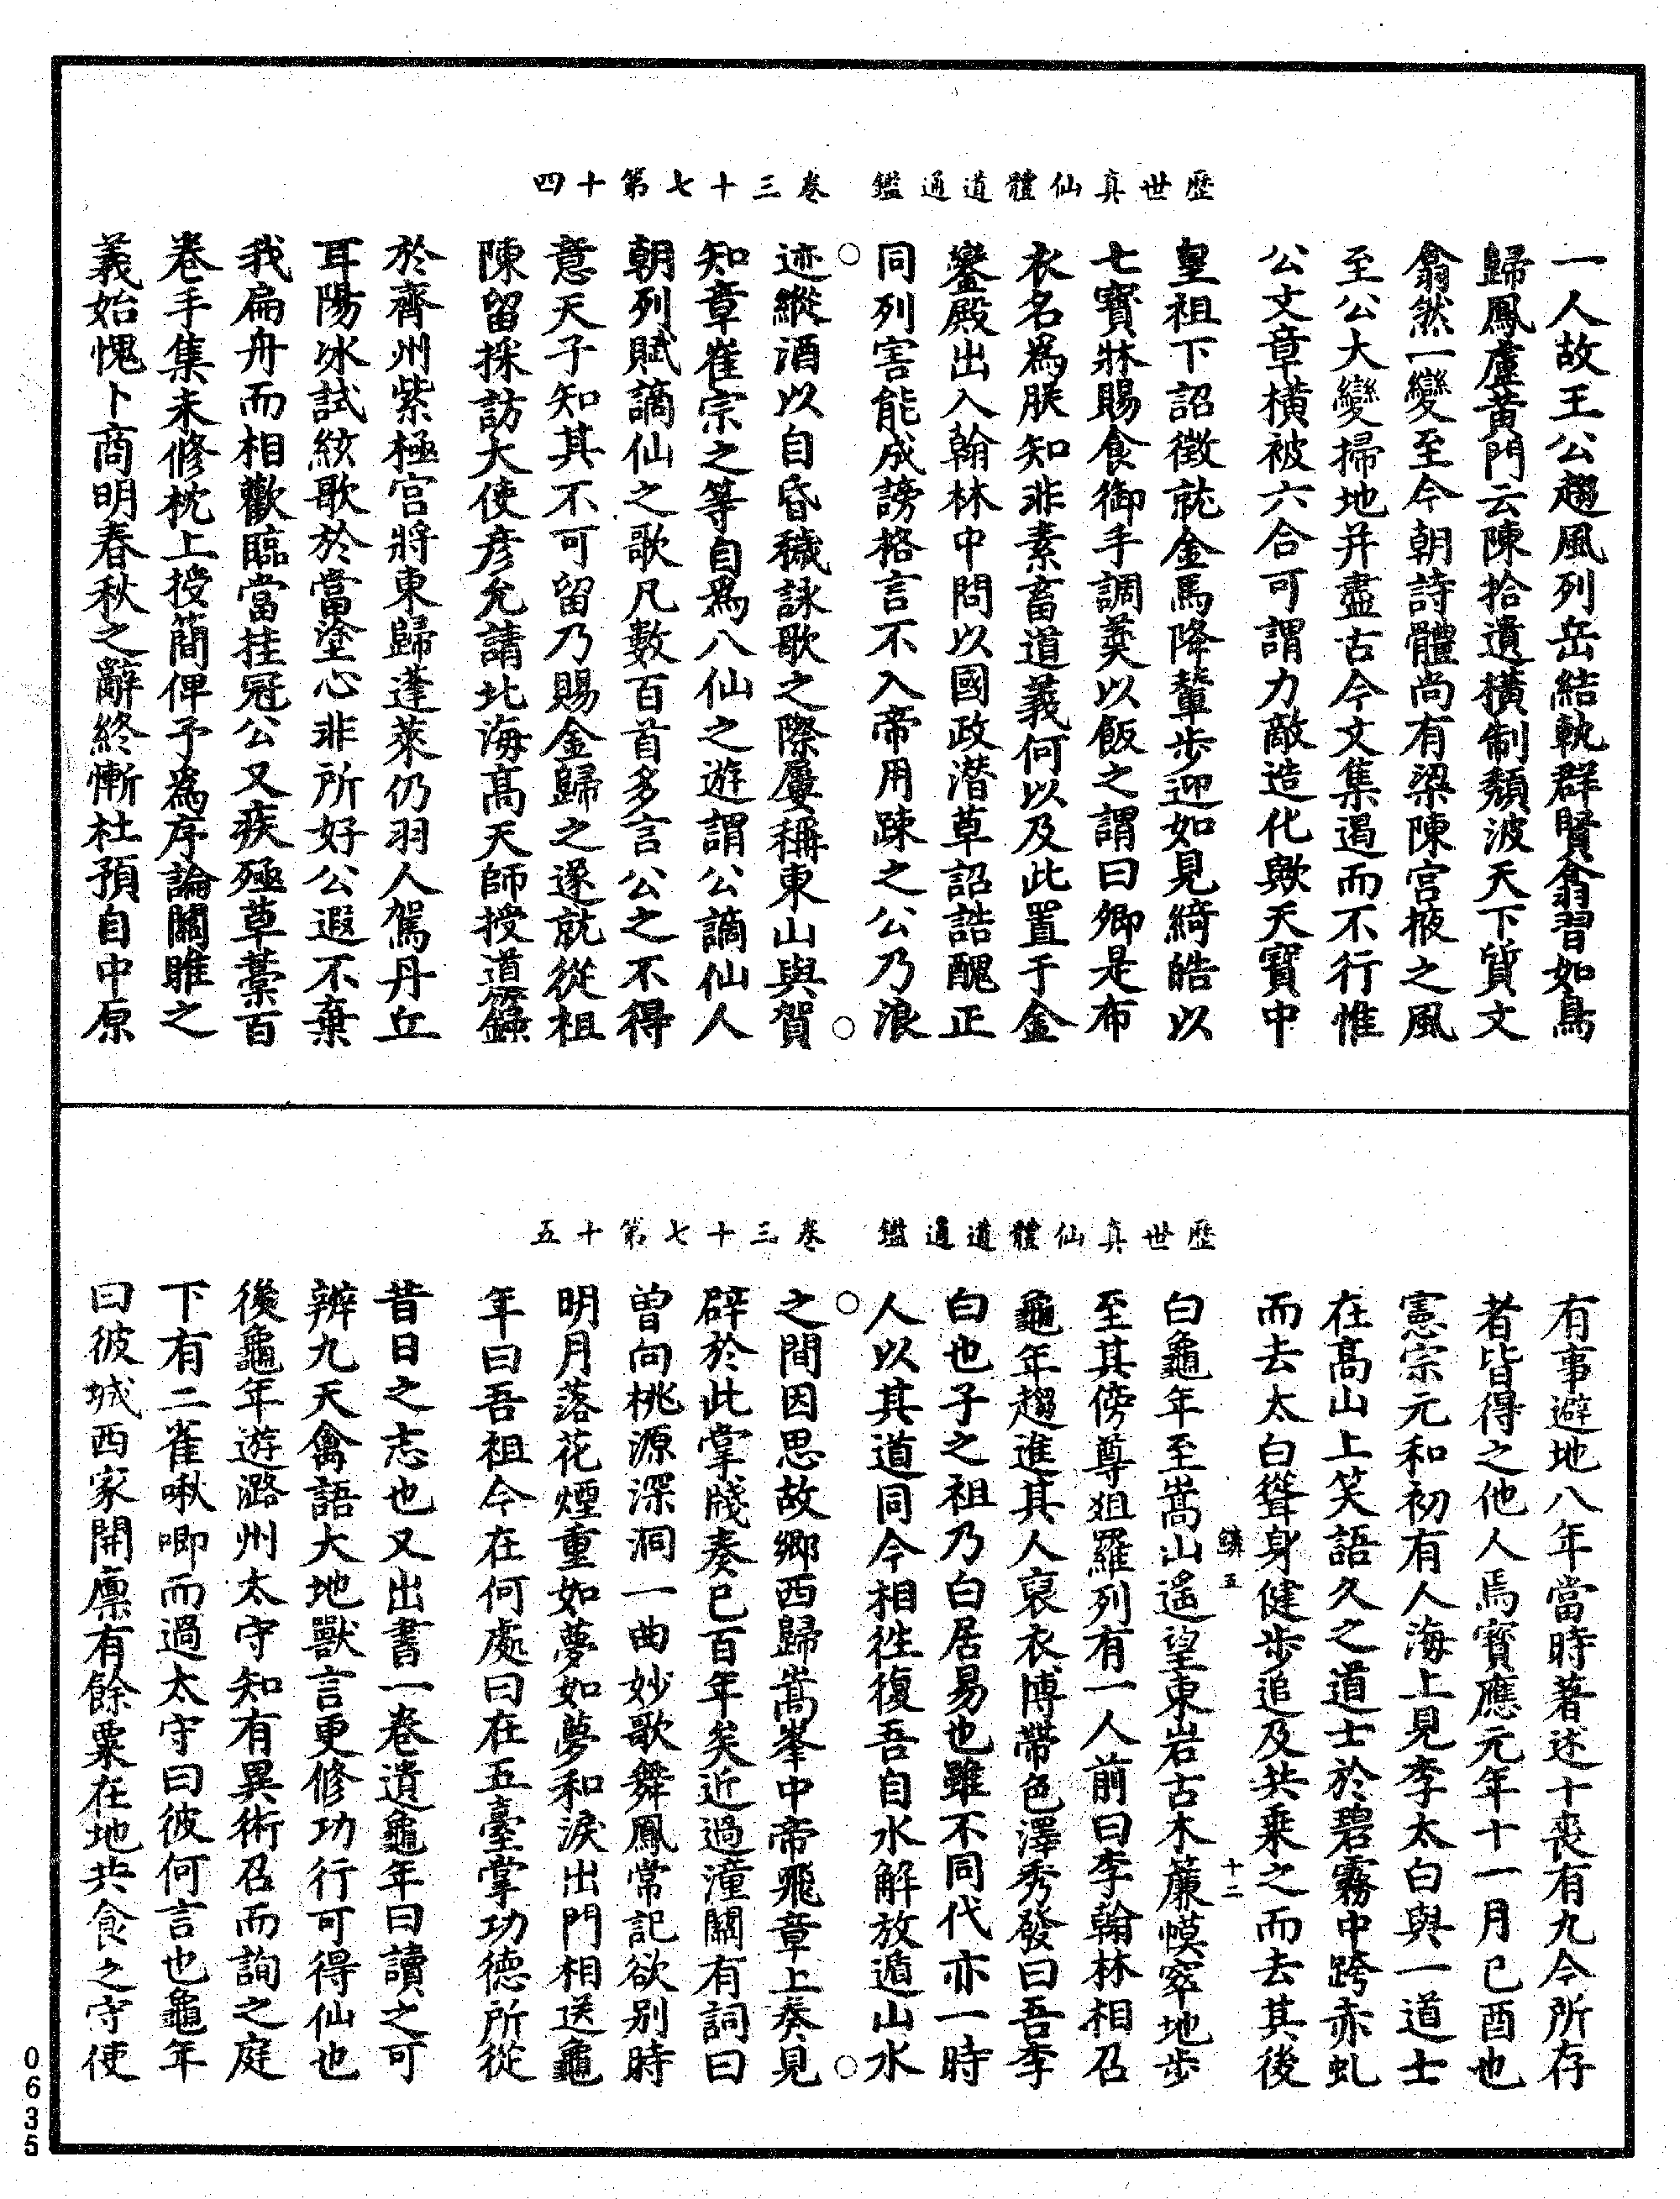 歷世真仙體道通鑑　卷三十七第十四
一人故王公趨風列岳結軌群賢翕習如鳥
歸鳳盧黃門云陳拾遺橫制頹波天下質文
翕然一變至今朝詩體尚有梁陳宮掖之風
至公大變掃地并盡古今文集遏而不行惟
公文章橫被六合可謂力敵造化歟天寶中
皇祖下詔徵就金馬降輦步迎如見綺皓以
七寶牀賜食御手調羹以飯之謂曰卿是布
衣名為朕知非素畜道義何以及此置于金
鑾殿出入翰林中問以國政潜草詔誥醜正
同列害能成謗格言不入帝用疎之公乃浪
迹縱酒以自昏穢詠歌之際屢稱東山與賀
知章崔宗之等自為八仙之遊謂公謫仙人
朝列賦謫仙之歌凡數百首多言公之不得
意天子知其不可留乃賜金歸之遂就從祖
陳留採訪大使彥允請北海高天師授道籙
於齊州紫極宮將東歸蓬萊仍羽人駕丹丘
耳陽冰試絃歌於當塗心非所好公遐不棄
我扁舟而相歡臨當挂冠公又疾殛草藁百
卷手集未修枕上授簡俾予為序論關雎之
義始愧卜商明春秋之辭終慚杜預自中原
歷世真仙體道通鑑　卷三十七第十五
有事避地八年當時著述十喪有九今所存
者皆得之他人焉寶應元年十一月己酉也
憲宗元和初有人海上見李太白與一道士
在高山上笑語久之道士於碧霧中跨赤虬
而去太白聳身健步追及共乗之而去其後
鱗五　十二
白龜年至嵩山遙望東岩古木簾幙窣地步
至其傍尊俎羅列有一人前曰李翰林相召
龜年趨進其人裒衣博帶色澤秀發曰吾李
白也子之祖乃白居易也雖不同代亦一時
人以其道同今相徃復吾自水解放遁山水
之間因思故鄉西歸嵩峯中帝飛章上奏見
辟於此掌牋奏已百年矣近過潼關有詞曰
曾向桃源深洞一曲妙歌舞鳳常記欲别時
明月落花煙重如夢如夢和淚出門相送龜
年曰吾祖今在何處曰在五臺掌功德所從
昔日之志也又出書一卷遺龜年曰讀之可
辨九天禽語大地獸言更修功行可得仙也
後龜年遊潞州太守知有異術召而詢之庭
下有二雀啾唧而過太守曰彼何言也龜年
曰彼城西家開廪有餘粟在地共食之守使
0635